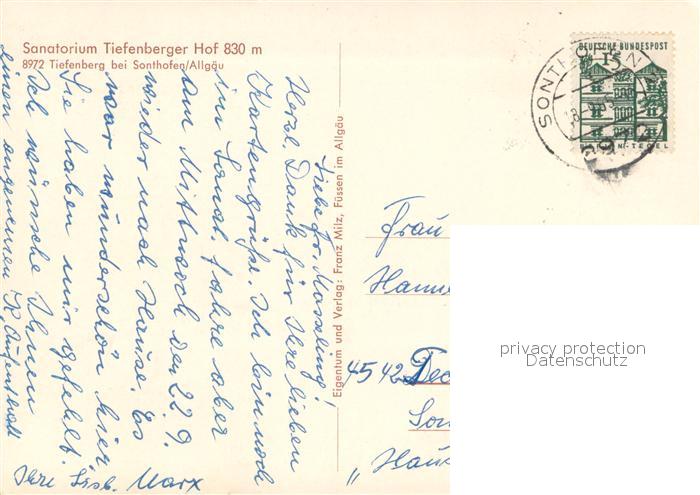 Sanatorium Tiefenberger Hof 830 m
8972 Tiefenberg bei Sonthofen/Allgäu
Liebe Fr. Mosseling!
Herzl. Dank für Ihre lieben
Kartengrüße. Ich bin noch
im Sanat. fahre aber
am Mittwoch den 22.9.
wieder nach Hause. Es
war wunderschön hier
Sie haben mir gefehlt.
Ich wünsche Ihnen
einen angenehmen K. Aufenthalt
Ihre Lisb. Marx
Eigentum und Verlag: Franz Milz, Füssen im Allgäu
DEUTSCHE BUNDESPOST
15
BERLIN-TEGEL
SONTHOFEN
8972
Frau
Hanne
4542 Tec
Son
"Haus
privacy protection
Datenschutz